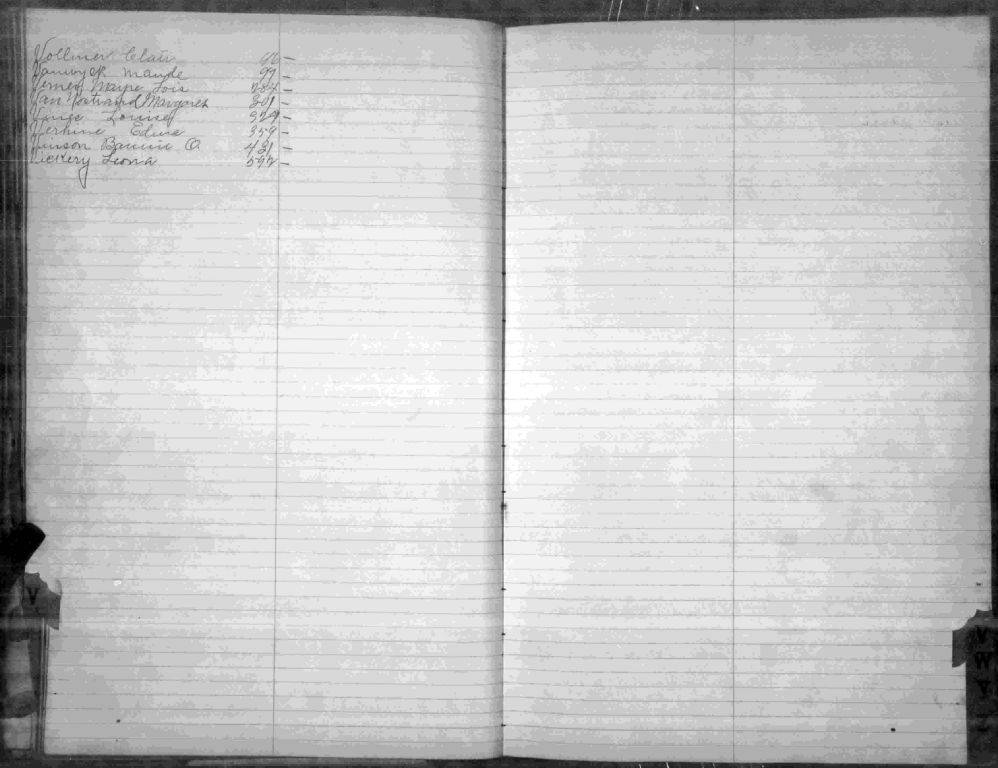 Vollmer Clair 46 -
Vanwyck Maude 99 -
Verney Marye Lois 284 -
Van Nostrand Margaret 301 -
Louise 329 -
Perkins Edwa 359 -
Vinson Bannie O. 431 -
Vickery Leona 597 -
V
V
W
Y